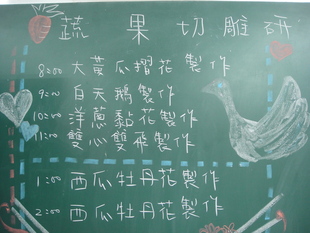 蔬果切雕研
8:00 大黃瓜摺花製作
9:00 白天鵝製作
10:00 洋蔥黏花製作
11:00 雙心雙飛製作
1:00 西瓜牡丹花製作
2:00 西瓜牡丹花製作